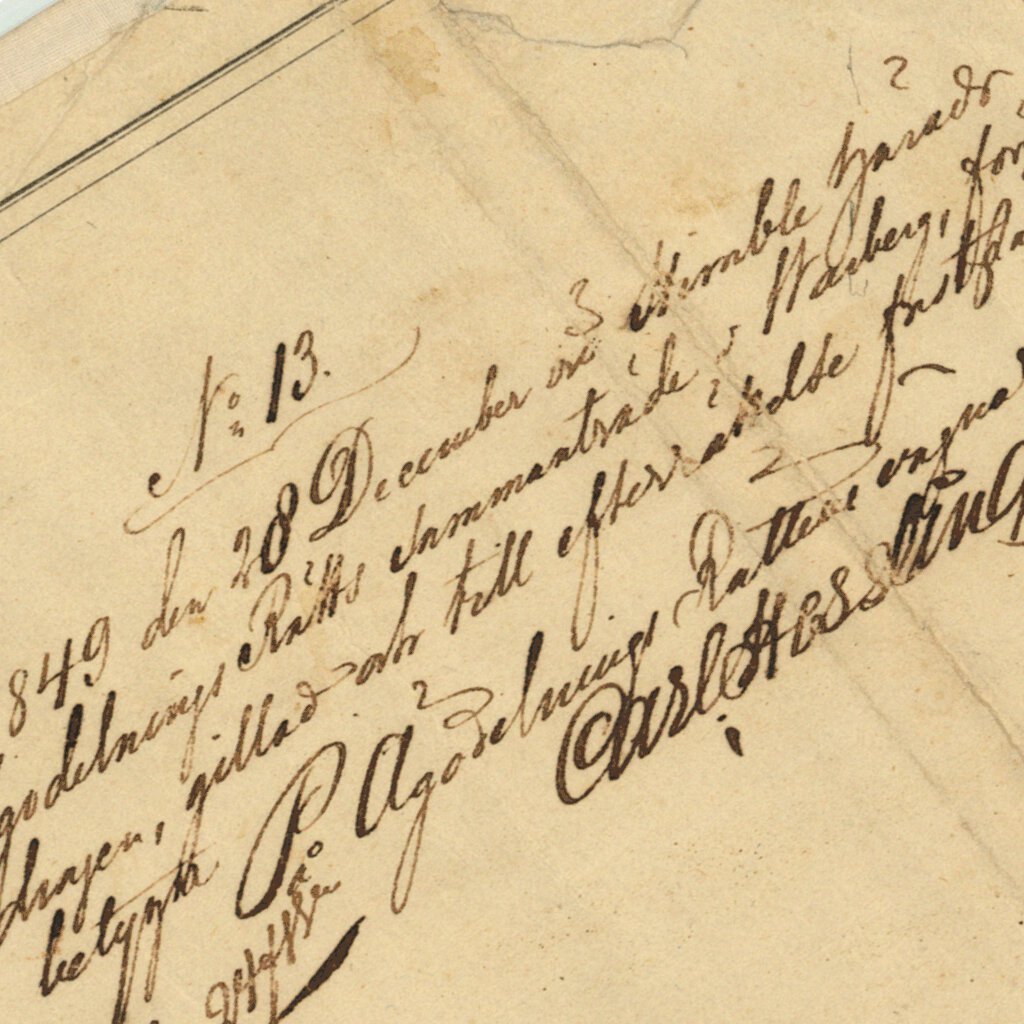 No 13.
1849 den 28 December vid Himble Härads
Ägodelnings Rätts sammanträde i Warberg, för
dragen, gillad och till efterrättelse fastställd
betygar På Ägodelnings Rättens vägnar
Carl Hossling